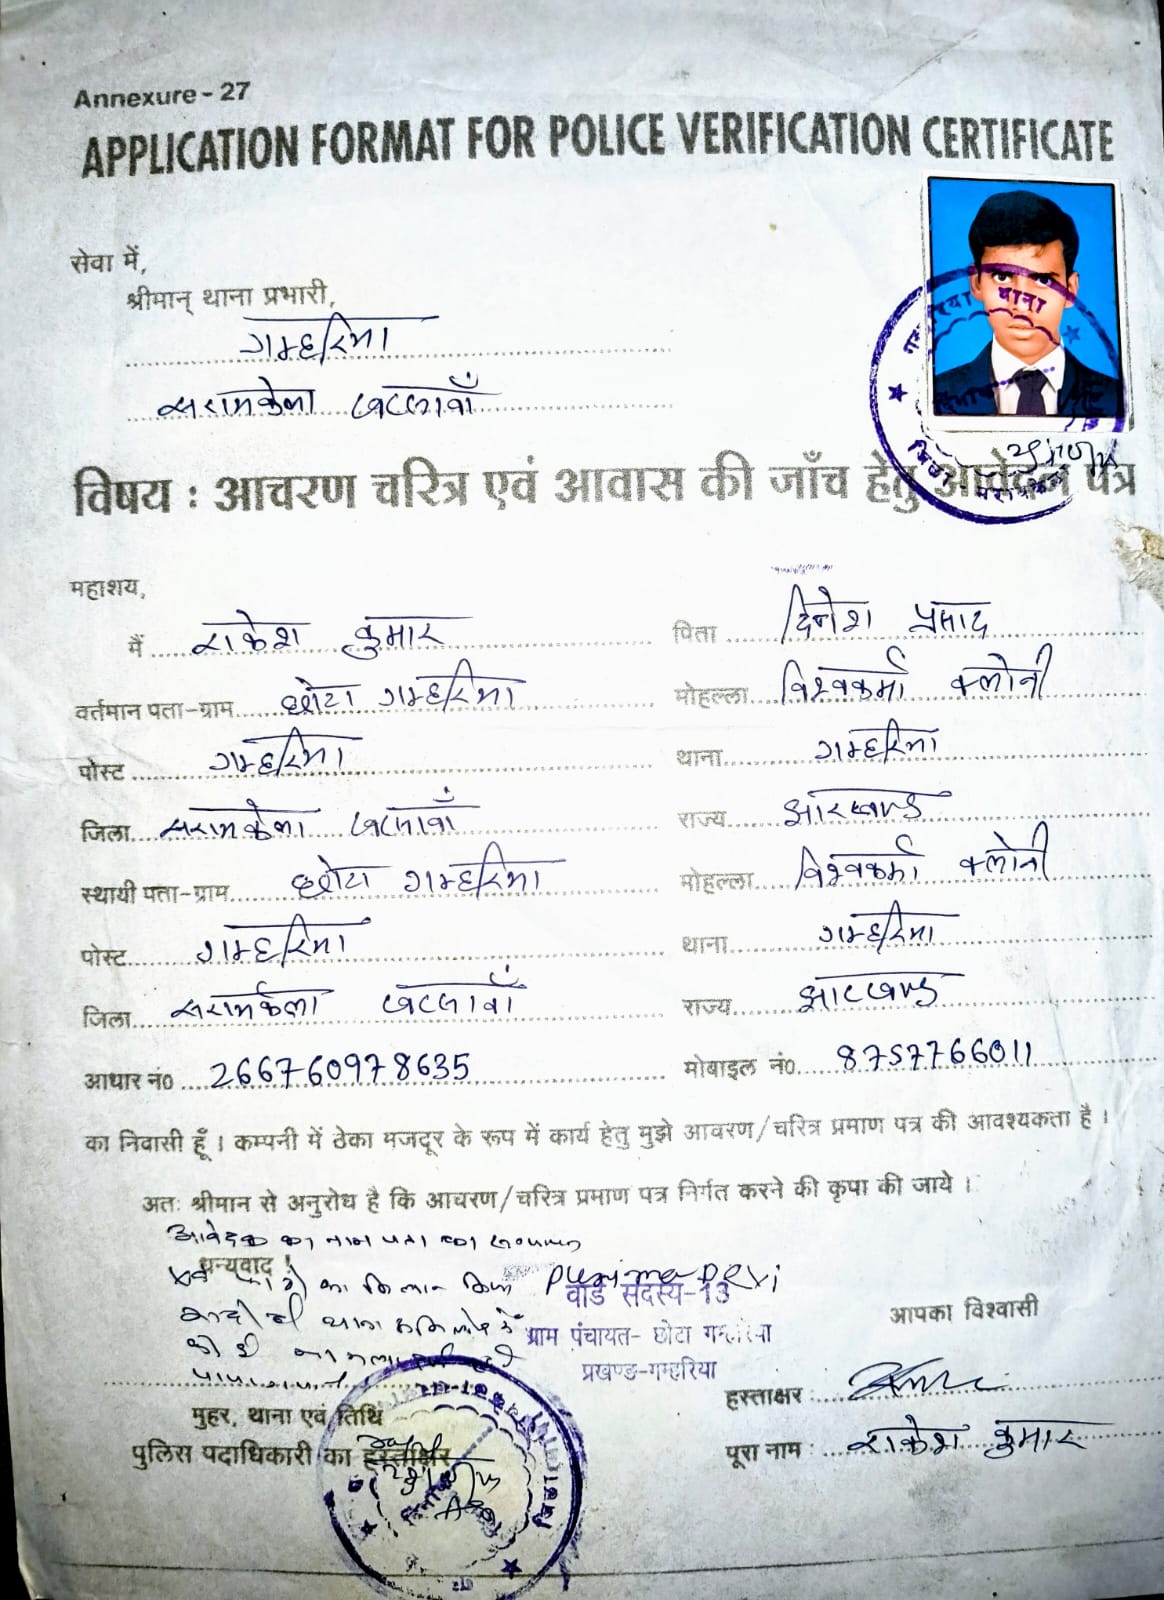 Annexure - 27
APPLICATION FORMAT FOR POLICE VERIFICATION CERTIFICATE
सेवा में,
श्रीमान् थाना प्रभारी,
गम्हरिया
सरायकेला खरसावाँ
विषय : आचरण चरित्र एवं आवास की जाँच हेतु आवेदन पत्र
थाना
जिला
महाशय,
मैं राकेश कुमार पिता दिनेश प्रसाद
वर्तमान पता-ग्राम छोटा गम्हरिया मोहल्ला विश्वकर्मा क्लोनी
पोस्ट गम्हरिया थाना गम्हरिया
जिला सरायकेला खरसावाँ राज्य झारखण्ड
स्थायी पता-ग्राम छोटा गम्हरिया मोहल्ला विश्वकर्मा क्लोनी
पोस्ट गम्हरिया थाना गम्हरिया
जिला सरायकेला खरसावाँ राज्य झारखण्ड
आधार नं० 266760978635 मोबाइल नं० 8757766011
का निवासी हूँ । कम्पनी में ठेका मजदूर के रूप में कार्य हेतु मुझे आचरण/चरित्र प्रमाण पत्र की आवश्यकता है ।
अतः श्रीमान से अनुरोध है कि आचरण/चरित्र प्रमाण पत्र निर्गत करने की कृपा की जाये ।
आवेदक का नाम पता का सत्यापन
धन्यवाद !
का मिलान किया
Purnima Devi
वार्ड सदस्य-13
ग्राम पंचायत- छोटा गम्हरिया
प्रखण्ड-गम्हरिया
आपका विश्वासी
हस्ताक्षर :
मुहर, थाना एवं तिथि
पुलिस पदाधिकारी का हस्ताक्षर
पूरा नाम : राकेश कुमार
जिला